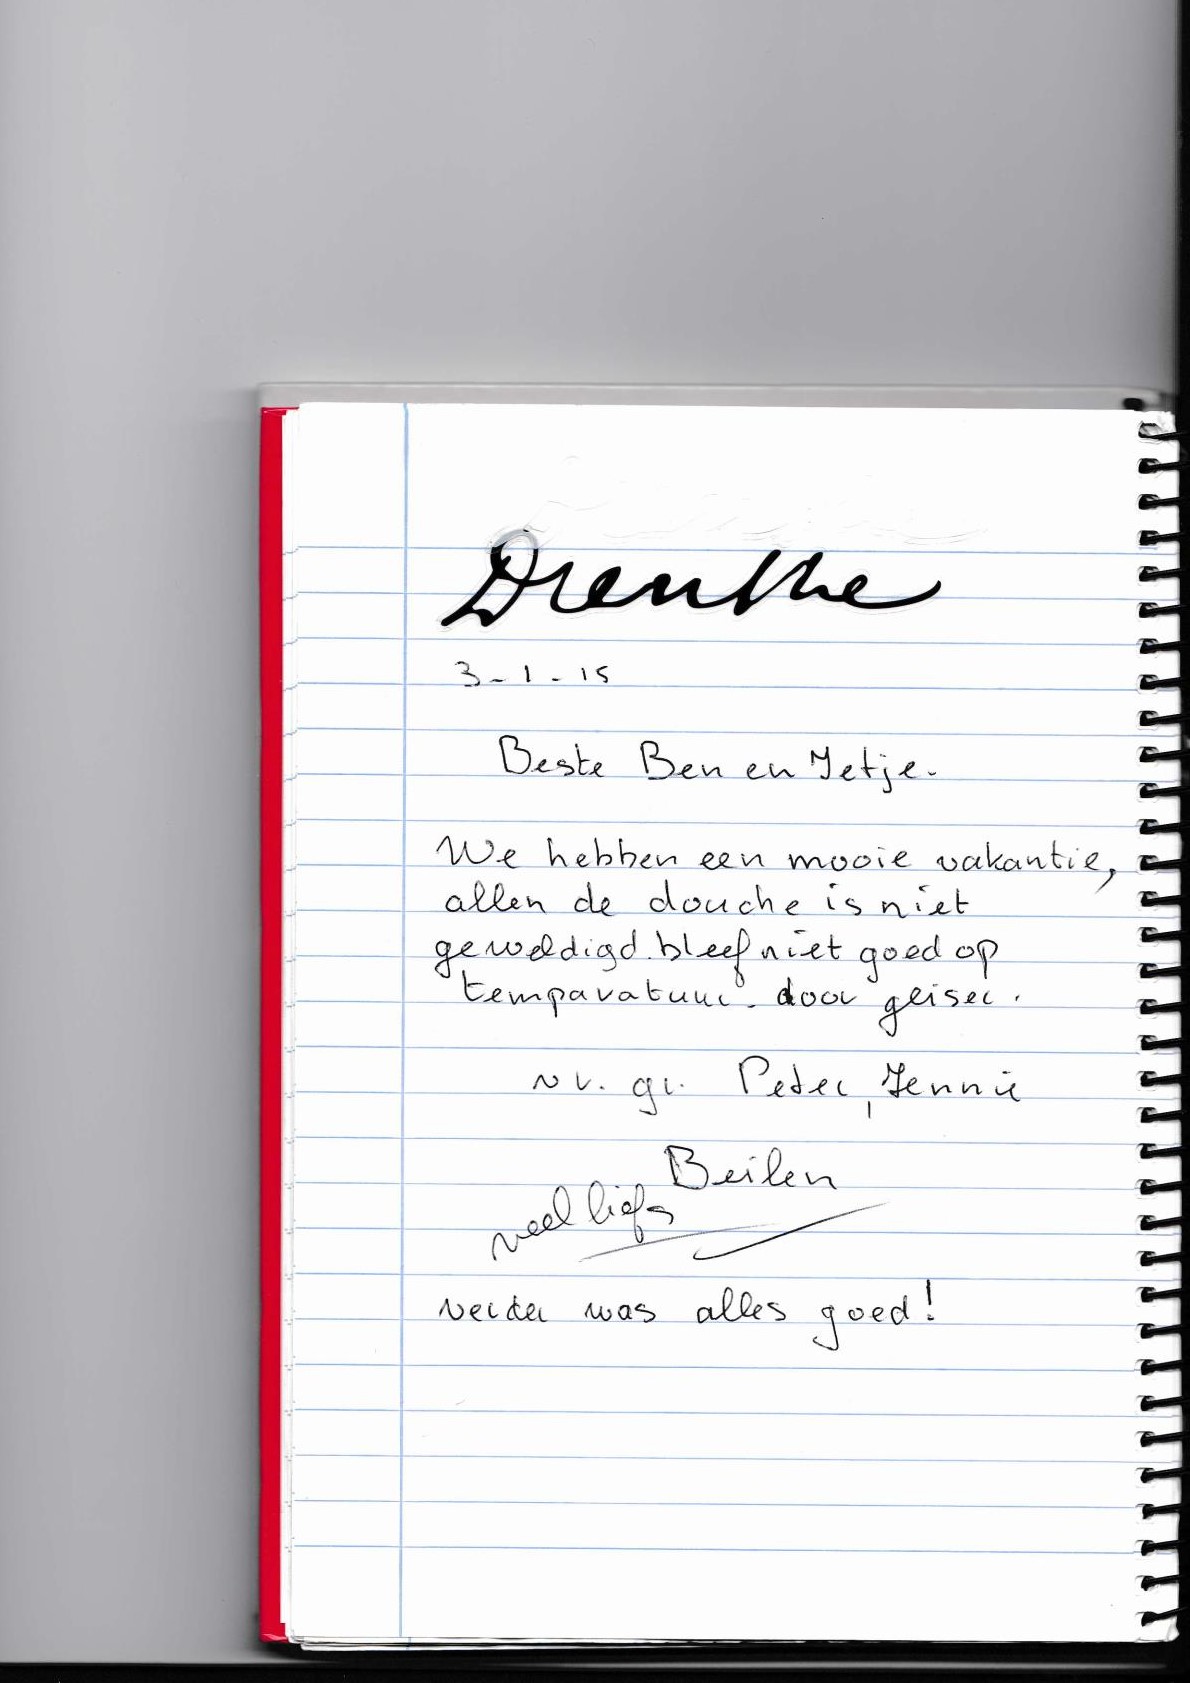 Drenthe
3-1-15
Beste Ben en Jetje.
We hebben een mooie vakantie,
allen de douche is niet
geweldigd. bleef niet goed op
temparatuur. door geiser.
vr. gr. Peter, Jennie
Beilen
veel liefs
verder was alles goed!